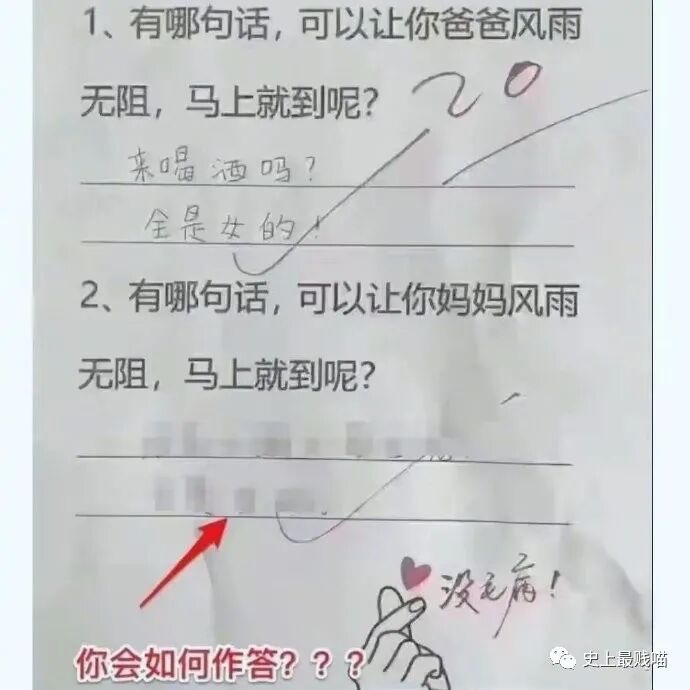 1、有哪句话，可以让你爸爸风雨
无阻，马上就到呢？
20
来喝酒吗？
全是女的！
2、有哪句话，可以让你妈妈风雨
无阻，马上就到呢？
没毛病！
你会如何作答？？？
史上最贱喵